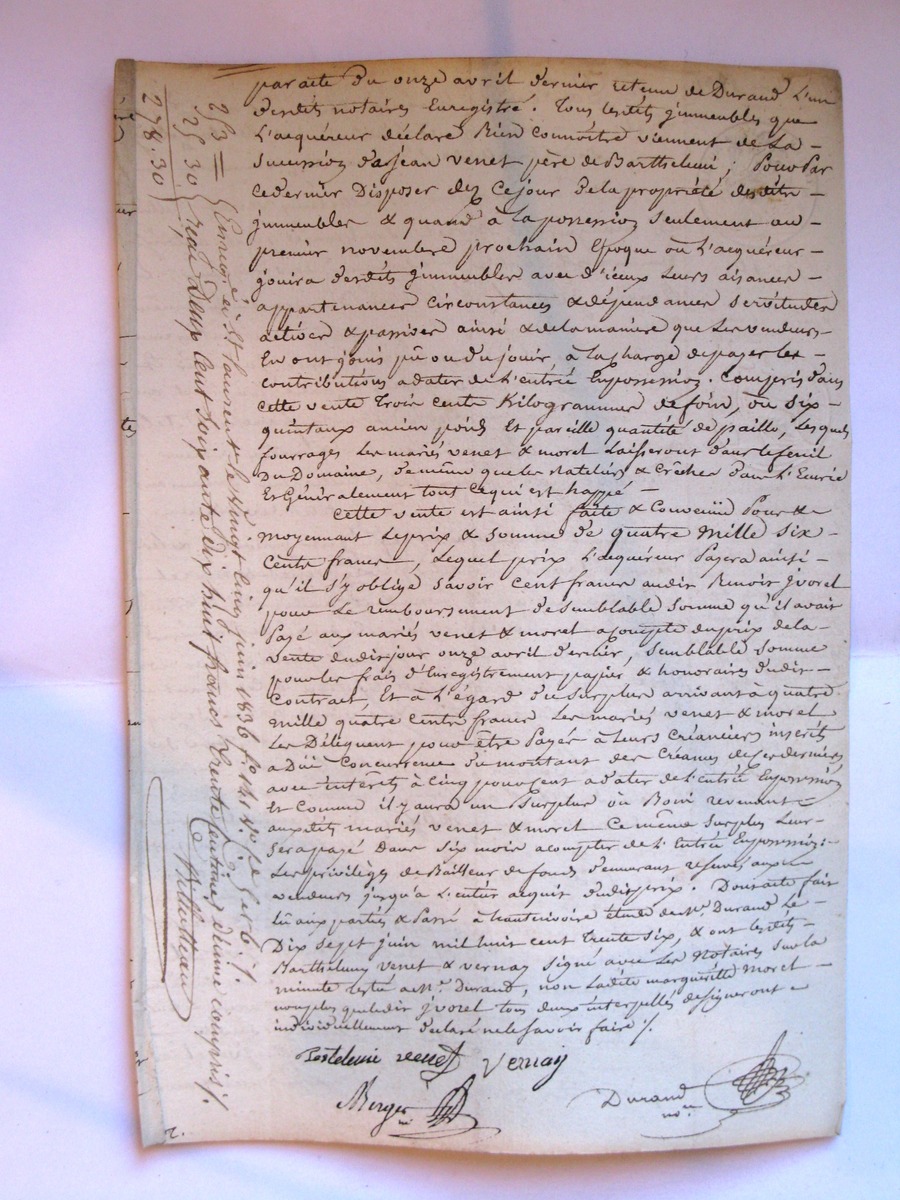 par acte du onze avril dernier retenu de Durand L'un
desdits notaires Enregistré. Tous lesdits jmmeubles que
L'acquéreur déclare Bien Connoître viennent de La
succession de jean venet père de Barthelemi; Pour Par
ce dernier Disposer dez Cejour dela propriété desdits
jmmeubles & quand à La possession seulement au
premier novembre prochain Epoque où L'acquéreur
jouira desdits jmmeubles avec d'iceux Leurs aisances
appartenances circonstances & dépendances servitudes
actives & passives ainsi & de la manière que Les vendeurs
En ont joui pû ou du jouir, à la charge de payer les
contributions à dater de l'entrée En possession. Compris dans
cette vente trois cents Kilogrammes de foin, ou six
quintaux ancien poids Et pareille quantité de paille, Lesquels
fourrages Les mariés venet & moret Laisseront dans le fenil
Du Domaine, de même que les rateliers & Crêches dans l'Ecurie
Et Généralement tout Ce qui est happé
Cette vente est ainsi faite & Convenue Pour &
moyennant Le prix & somme de quatre mille six
Cents francs, Lequel prix L'acquéreur Payera ainsi
qu'il s'y oblige savoir Cent francs audit Benoit jvoret
pour Le remboursement de semblable somme qu'il avait
Payé aux mariés venet & moret acompte du prix de la
vente dudit jour onze avril dernier, semblable somme
pour les frais d'Enregistrement papier & honoraires dudit
Contract, Et à L'égard du surplus arrivant à quatre
mille quatre cents francs Les mariés venet & moret
Les Délèguent pour être Payés à Leurs Créanciers inscrits
a Düe Concurrence du montant des Créances de ces derniers
avec intérêts à Cinq pour cent à dater de l'entrée En possession
Et Comme il y aura un Surplus ou Boni revenant
auxdits mariés venet & moret Ce même surplus Leur
sera payé Dans six mois à compter de L'Entrée En possession:
Les privilèges de Bailleur de fonds demeurant reservés aux
vendeurs jusqu'à L'entier acquit dudit prix. Dont acte fait
lû aux parties & Passé à étude de Me. Durand Le
Dix sept juin mil huit cent trente six, & ont lesdits
Barthelemy venet & vernay signé avec Les Notaires sur la
minute restée a Me. Durand, non Ladite marguerite moret
non plus que ledit jvoret tous deux interpellés de signer ont
individuellement déclaré ne le savoir faire /.
Bartelemi venet Vernay
Merger Durand
nre
253 =
25 30
278. 30
Enregistré à St. Laurent le Vingt cinq juin 1836 fo. 41 Vo. Ces 5 et 6 /.
reçu Deux Cent soixante dix huit francs trente centimes, dixième compris /.